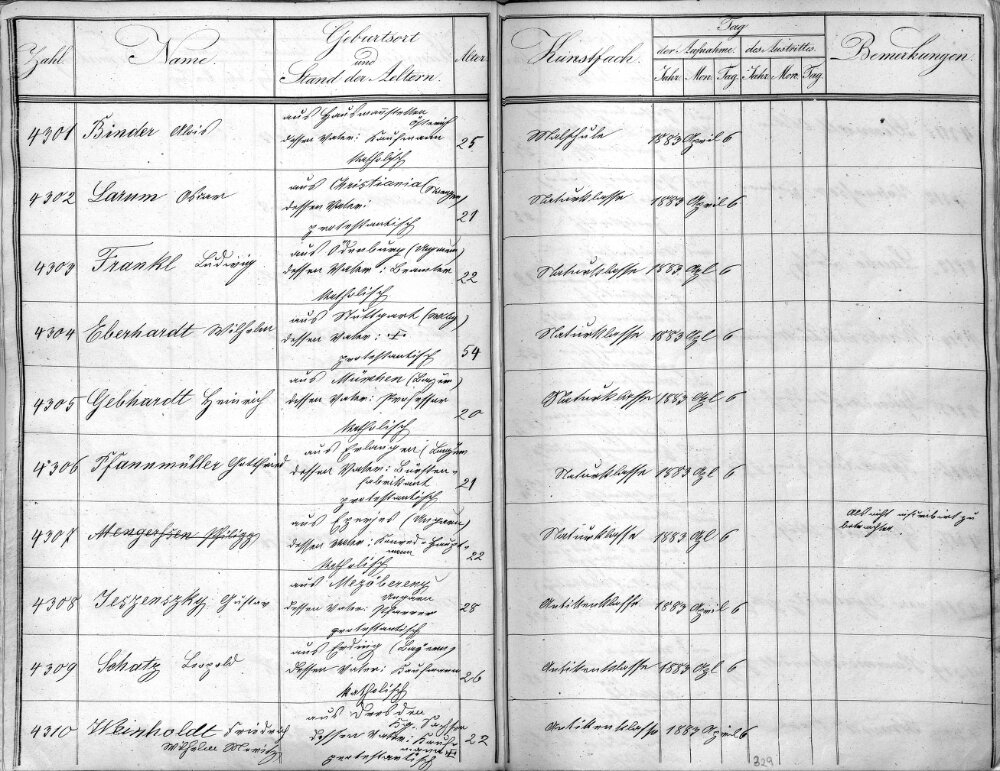 Zahl Name Geburtsort und Stand der Aeltern. Alter Kunstfach. Tag Bemerkungen.
der Aufnahme. des Austrittes.
Jahr Mon. Tag. Jahr Mon. Tag.
aus
Österreich
4301 Binder Alois dessen Vater: Kaufmann 25 Malschule 1883 April 6
katholisch
aus Christiania (Norwegen)
4302 Larum Oscar dessen Vater: 21 Naturklasse 1883 April 6
protestantisch
aus Ödenburg (Ungarn)
4303 Frankl Ludwig dessen Vater: Beamter 22 Naturklasse 1883 Apl 6
katholisch
aus Stuttgart (Wttbg)
4304 Eberhardt Wilhelm dessen Vater: † 54 Naturklasse 1883 Apl 6
protestantisch
aus München (Bayern)
4305 Gebhardt Heinrich dessen Vater: Professor 20 Naturklasse 1883 Apl 6
katholisch
aus Erlangen (Bayern
4306 Pfannmüller Gottfried dessen Vater: Bürsten- 21 Naturklasse 1883 Apl 6
fabrikant
protestantisch
aus Eperjes (Ungarn) Als nicht inscribirt zu
4307 Philipp dessen Vater: Haupt- 22 Naturklasse 1883 Apl 6 betrachten.
mann
katholisch
aus Mezöbereny
Ungarn
4308 Jeszenszky Gustav dessen Vater: Pfarrer 28 Antikenklasse 1883 April 6
protestantisch
aus Erding (Bayern)
4309 Schatz Leopold dessen Vater: Kaufmann 26 Antikenklasse 1883 Apl 6
katholisch
aus Dresden
Kg. Sachsen
4310 Weinholdt Friedrich dessen Vater: Kauf- 22 Antikenklasse 1883 April 6
Wilhelm Moritz mann †
protestantisch
329